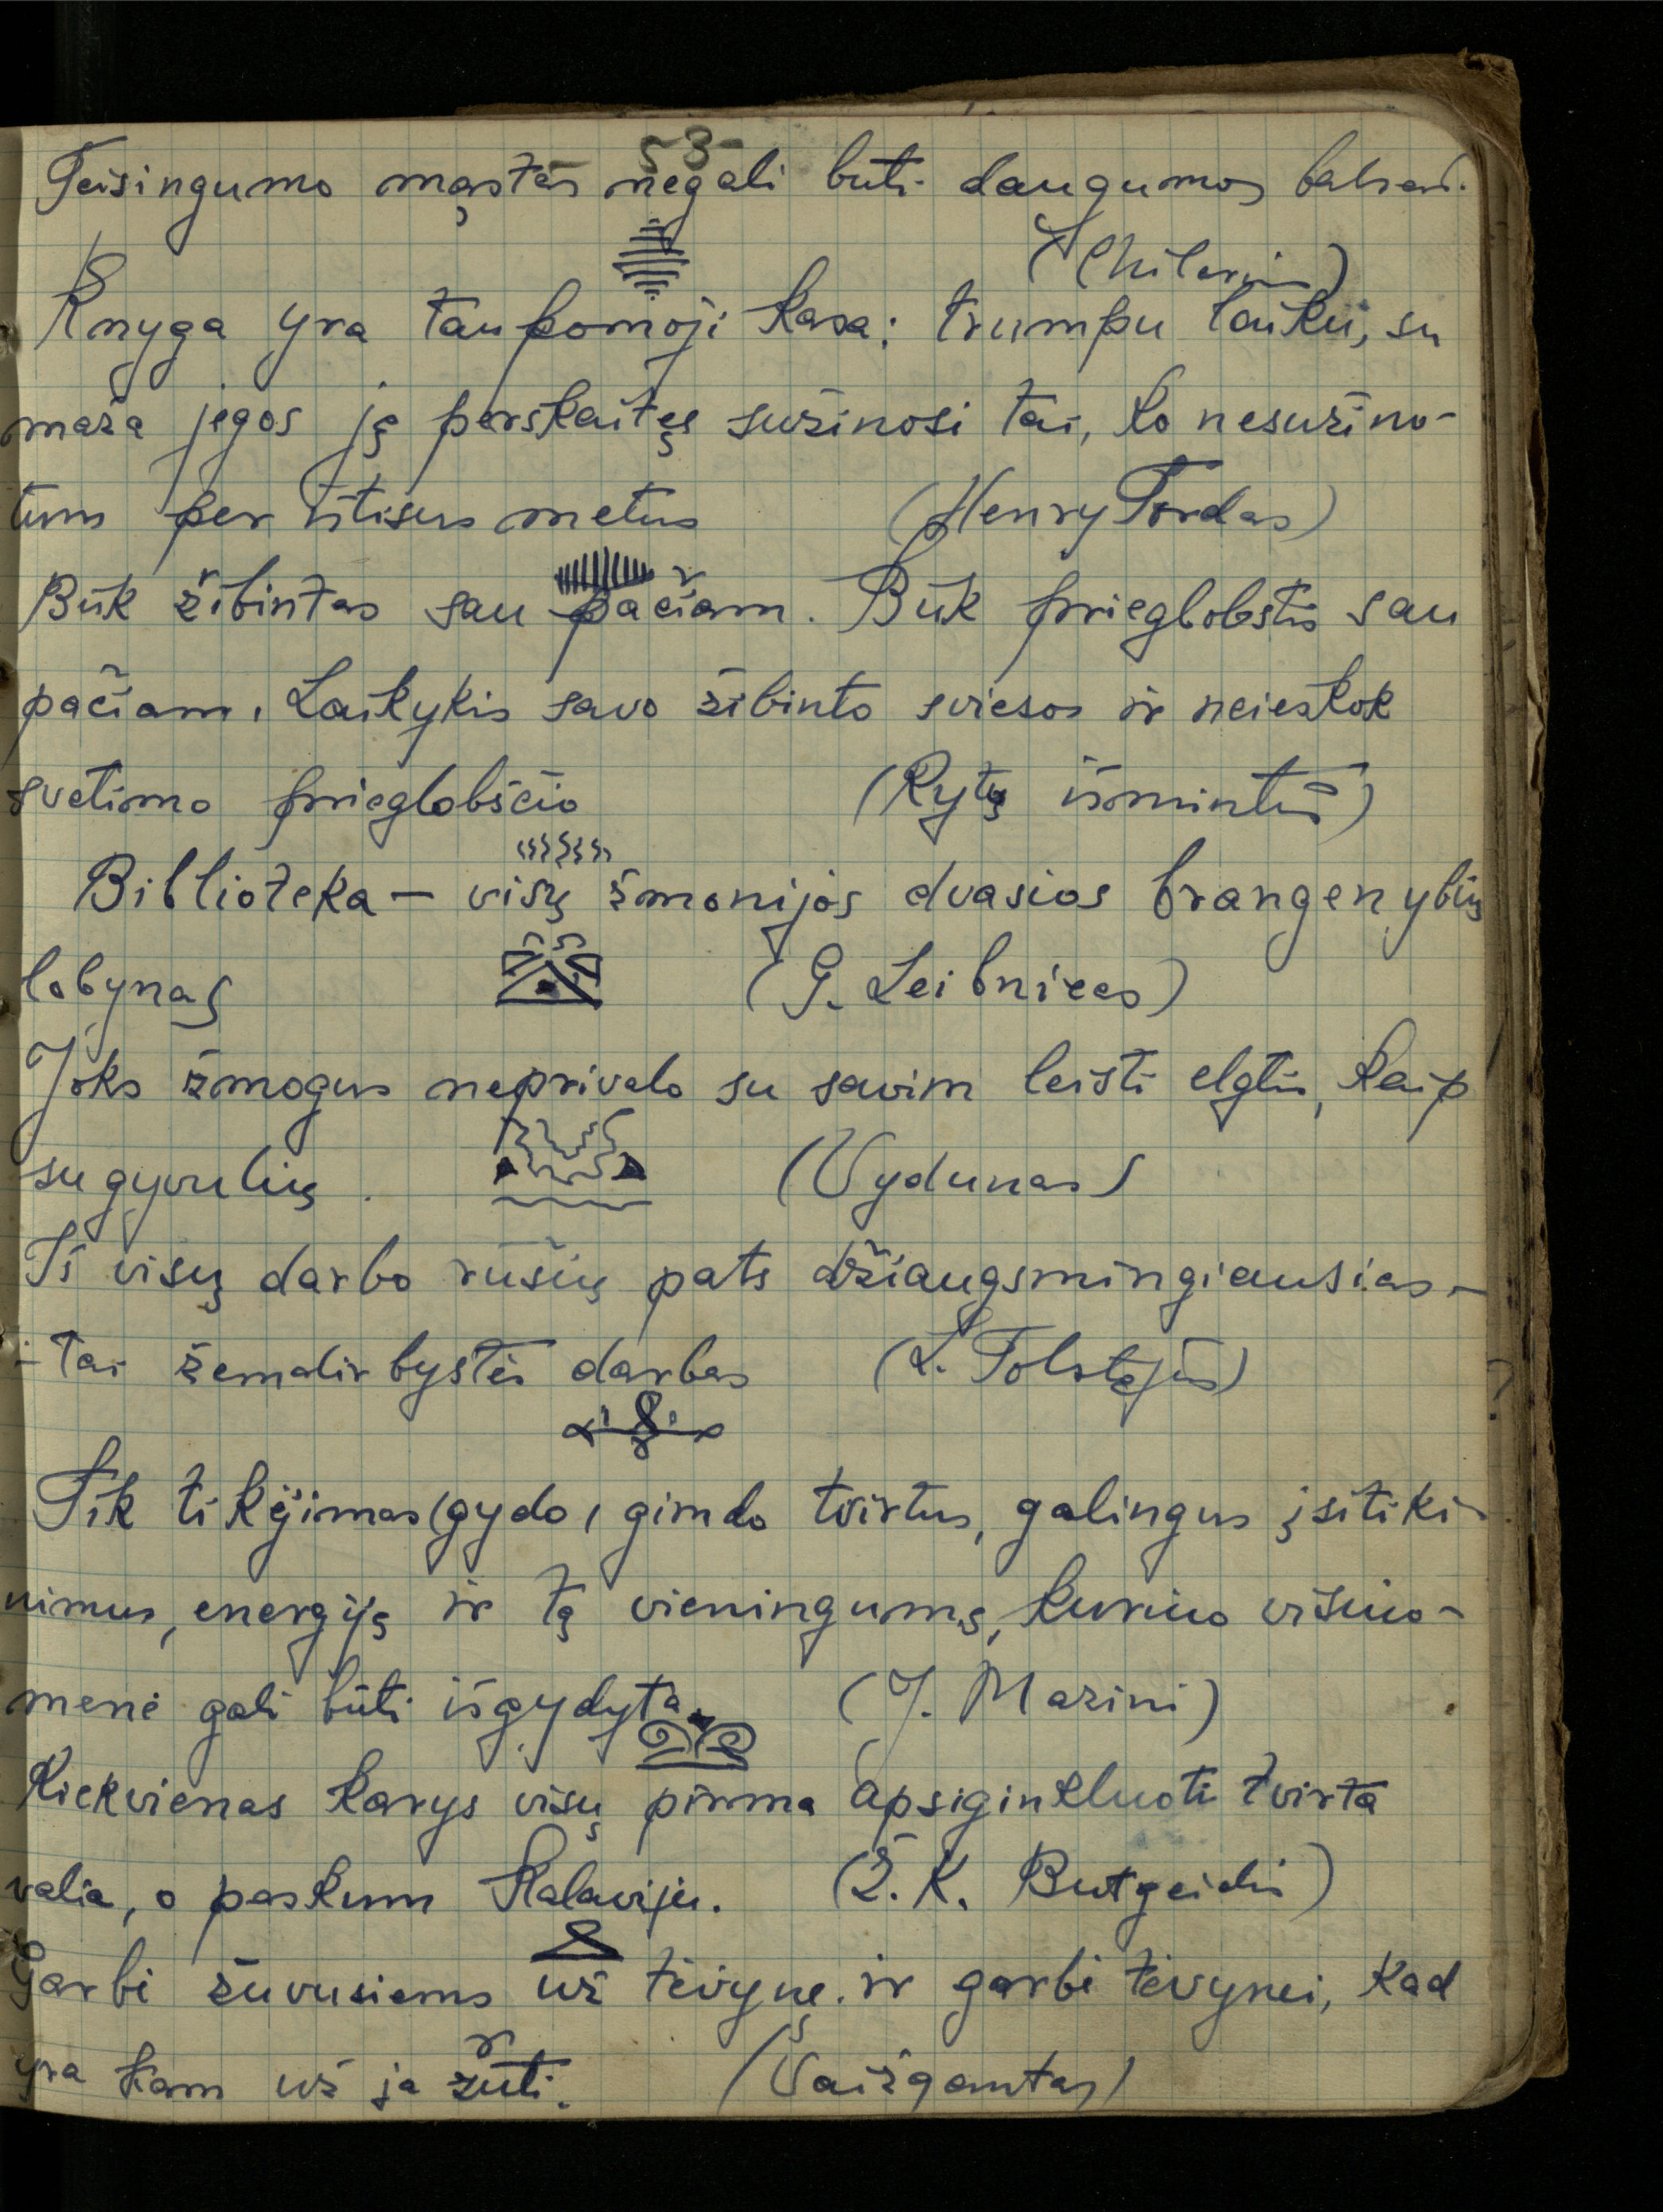 53
Teisingumo mąstas negali būti daugumos balsas.
Knyga yra taupomoji kasa: trumpu laiku, su
maža jėgos ją perskaitęs sužinosi tai, ko nesužino-
tum per ištisus metus (Henry Fordas)
Būk žibintas sau pačiam. Būk prieglobstis sau
pačiam. Laikykis savo žibinto šviesos ir neieškok
svetimo prieglobsčio (Rytų išmintis)
Biblioteka — visų žmonijos dvasios brangenybių
lobynas (G. Leibnicas)
Joks žmogus neprivalo su savim leisti elgtis, kaip
su gyvulių. (Vydunas)
Iš visų darbo rūšių pats džiaugsmingiausias -
- tai žemdirbystės darbas (L. Tolstojus)
Tik tikėjimas (gydo, gimdo tvirtus, galingus įsitiki-
nimus, energiją ir tą vieningumą, kuriuo visuo-
menė gali būti išgydyta. (J. Mazini)
Kiekvienas karys visų pirma apsiginkluoti tvirta
valia, o paskum kalaviju. (Ž. K. Butgeidis)
Garbė žuvusiems už tėvynę ir garbė tėvynei, kad
yra kam už ja žūti. (Vaižgantas)